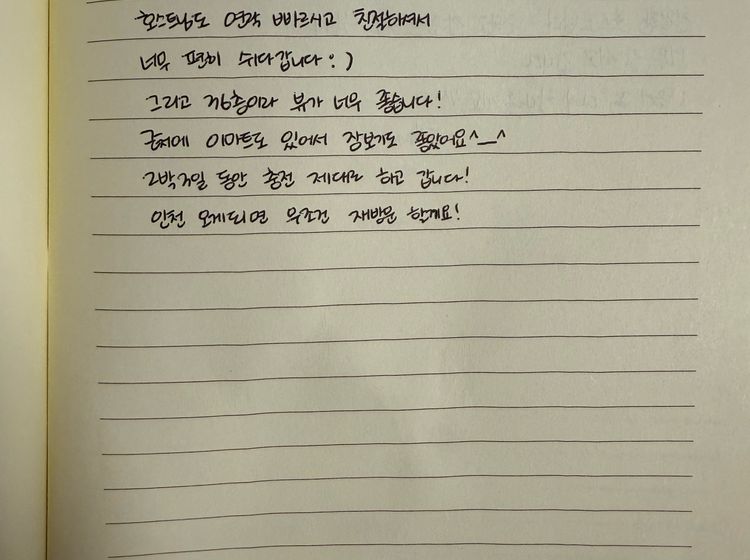 호스트님도 연락 빠르시고 친절하셔서
너무 편히 쉬다갑니다 : )
그리고 36층이라 뷰가 너무 좋습니다!
근처에 이마트도 있어서 장보기도 좋았어요^__^
2박3일 동안 충전 제대로 하고 갑니다!
인천 오게되면 무조건 재방문 할게요!